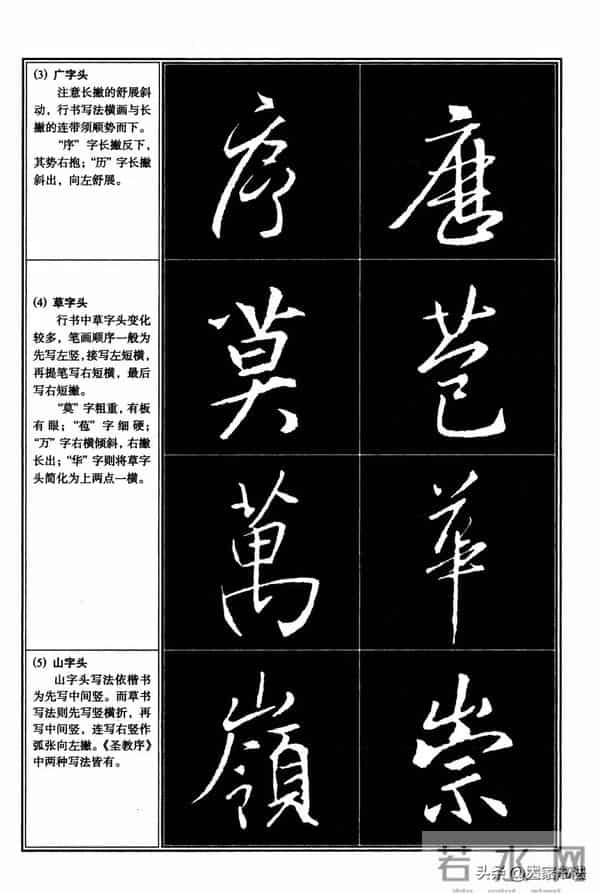 (3) 广字头
注意长撇的舒展斜
动，行书写法横画与长
撇的连带须顺势而下。
“序”字长撇反下，
其势右抱；“历”字长撇
斜出，向左舒展。
序
(4) 草字头
行书中草字头变化
较多，笔画顺序一般为
先写左竖，接写左短横，
再提笔写右短横，最后
写右短撇。
“莫”字粗重，有板
有眼；“苞”字细硬；
“万”字右横倾斜，右撇
长出；“华”字则将草字
头简化为上两点一横。
莫 苞
萬 華
(5) 山字头
山字头写法依楷书
为先写中间竖。而草书
写法则先写竖横折，再
写中间竖，连写右竖作
弧张向左撇。《圣教序》
中两种写法皆有。
嶺 崇
若水网
头条@